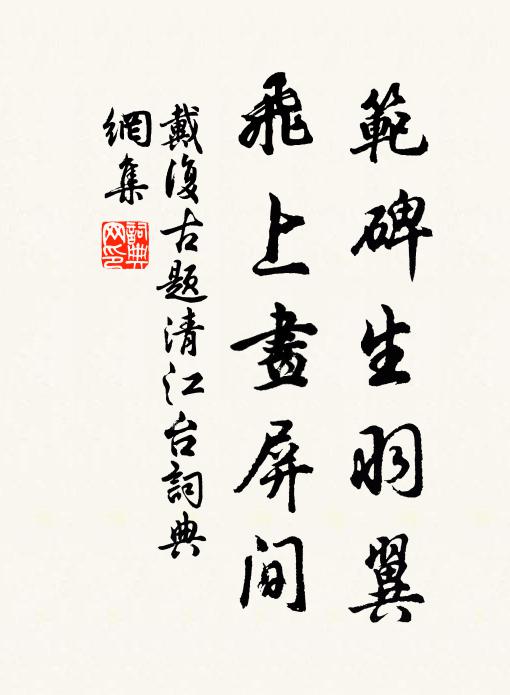 範碑生羽翼
飛上畫屏間
戴復古题清江台詞典
網集
詞典
网印